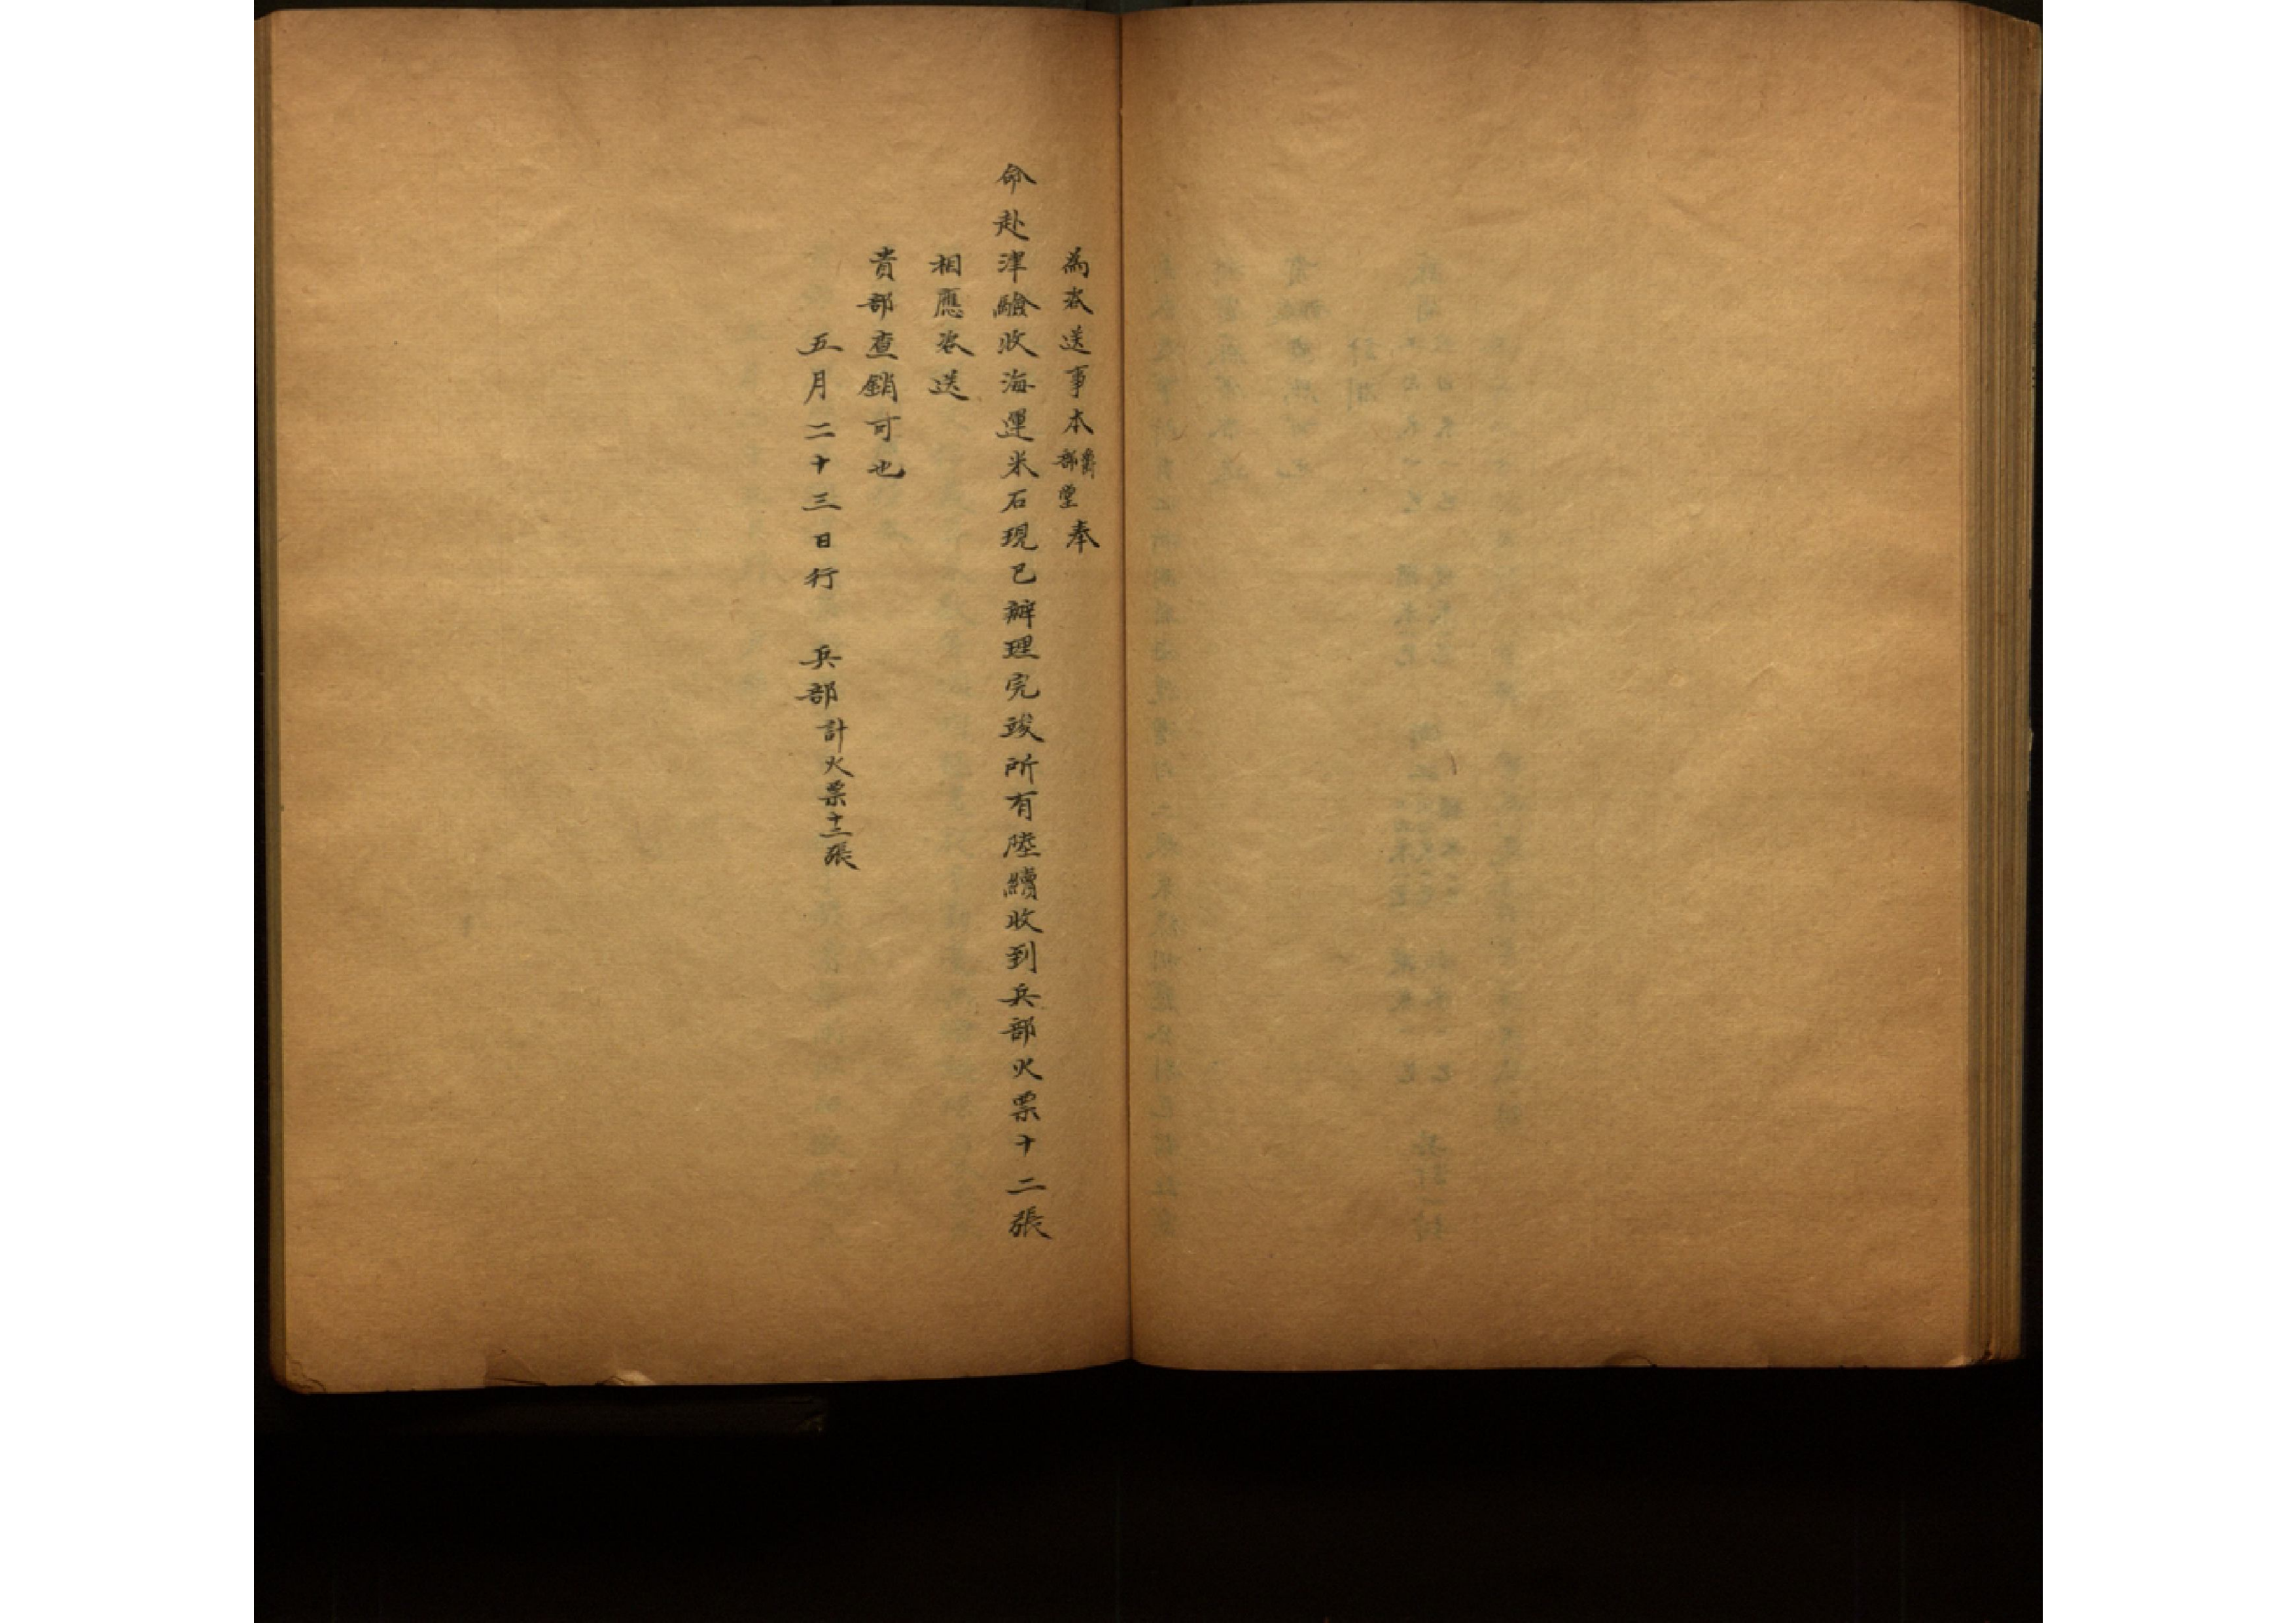 為咨送事本爵部堂奉
命赴津驗收海運米石現已辦理完竣所有陸續收到兵部火票十二張
相應咨送
貴部查銷可也
五月二十三日行　兵部計火票十二張